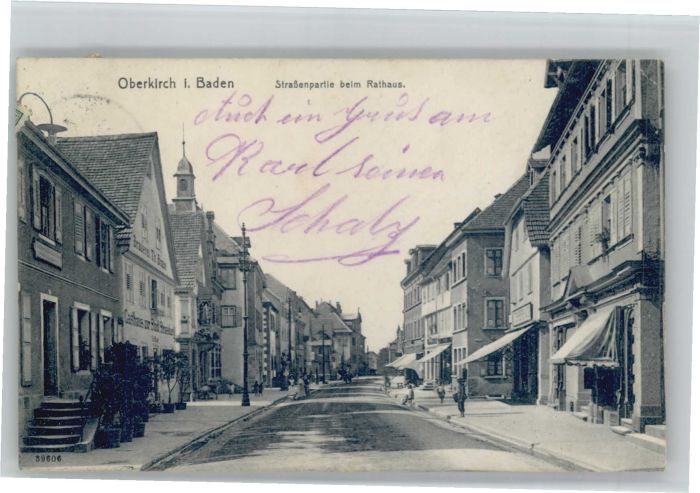 Oberkirch i. Baden
Straßenpartie beim Rathaus.
Auch ein Gruß am
Karl seinen
Schatz
Gasthaus zur Stadt Strassburg
39606